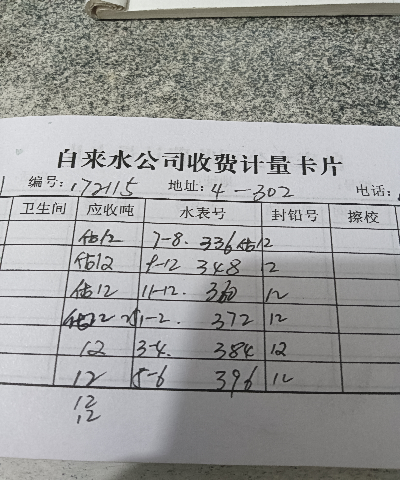 自来水公司收费计量卡片
编号: 172115 地址: 4-302 电话:
卫生间 应收吨 水表号 封铅号 擦校
估12 7-8. 336 估12
估12 9-12 348 12
估12 11-12. 360 12
估12 1-2. 372 12
12 3-4. 384 12
12 5-6 396 12
12
12